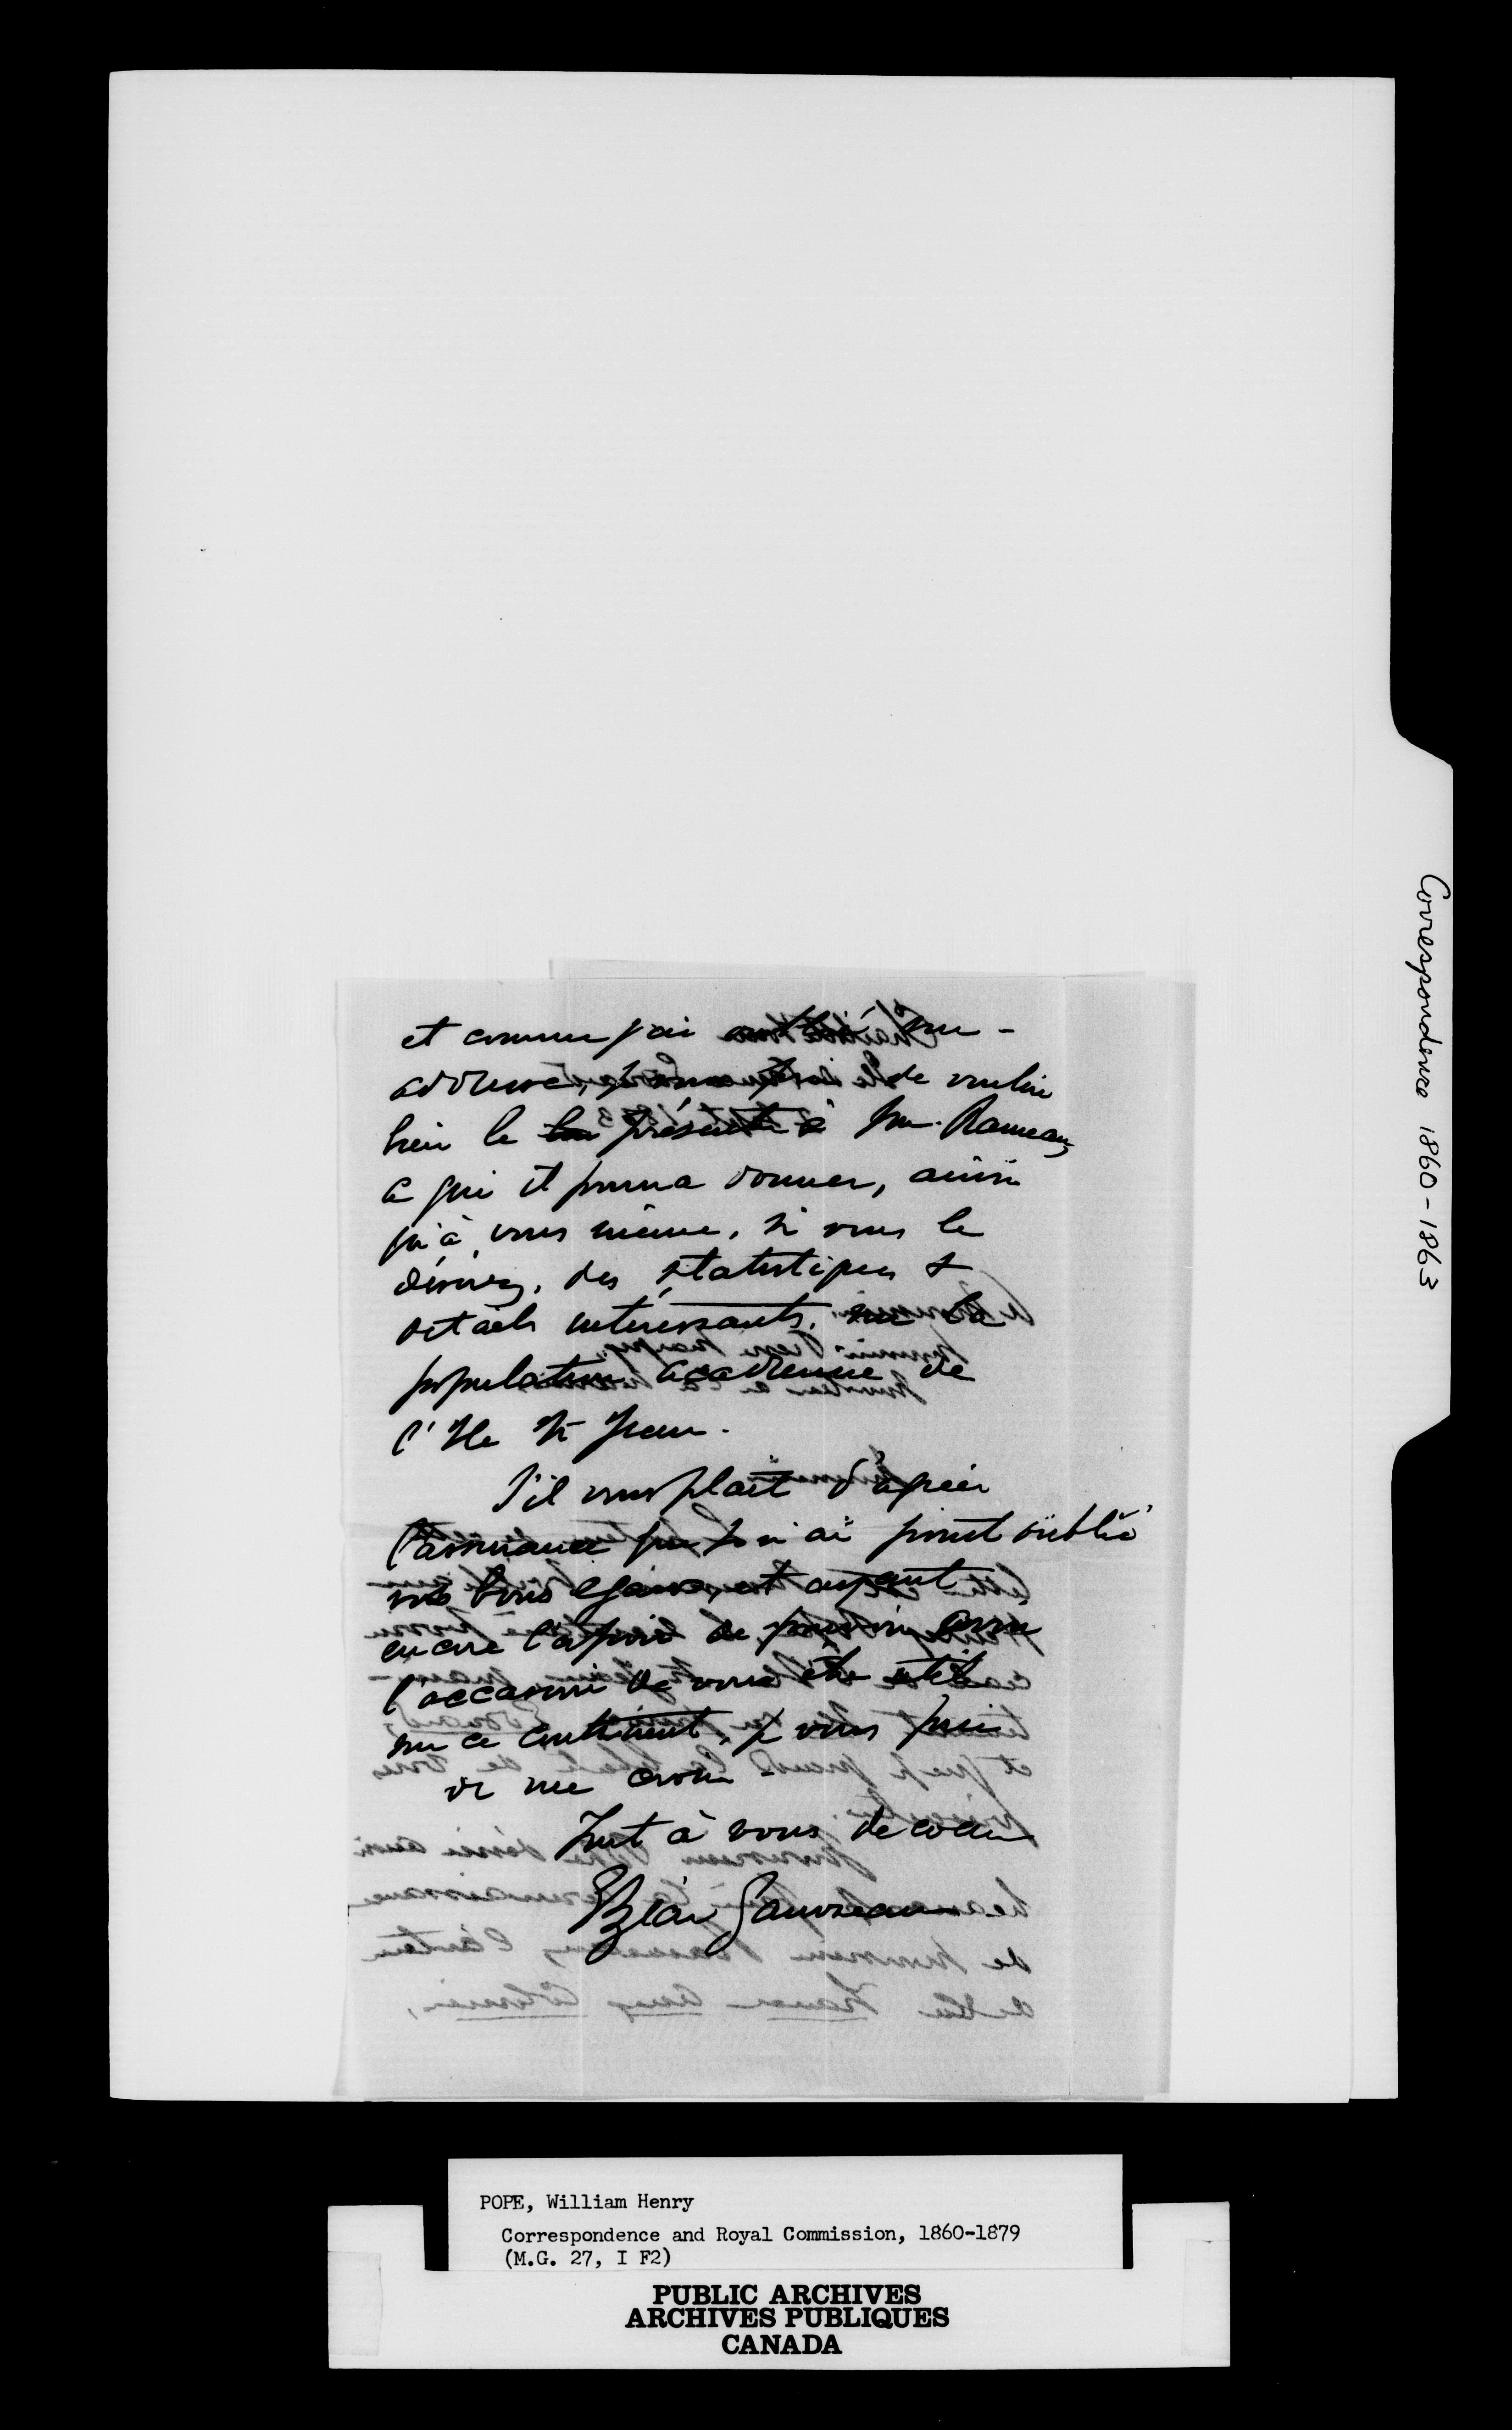 et comme j'ai oublié son
adresse, je vous prie de vouloir
bien le présenter à Mr. Rameau,
à qui il pourra donner, ainsi
qu'à vous même, si vous le
désirez, des statistiques &
détails intéressants, sur la
population acadienne de
l'Ile St Jean.
S'il vous plait d'agréer
l'assurance que je n'ai point oublié
vos bons égards, et ayant
encore l'espoir de pouvoir avoir
l'occasion de vous être utile
sur ce continent, je vous prie
de me croire
Tout à vous de coeur
Gauvreau
Correspondence 1860-1863
POPE, William Henry
Correspondence and Royal Commission, 1860-1879
(M.G. 27, I F2)
PUBLIC ARCHIVES
ARCHIVES PUBLIQUES
CANADA